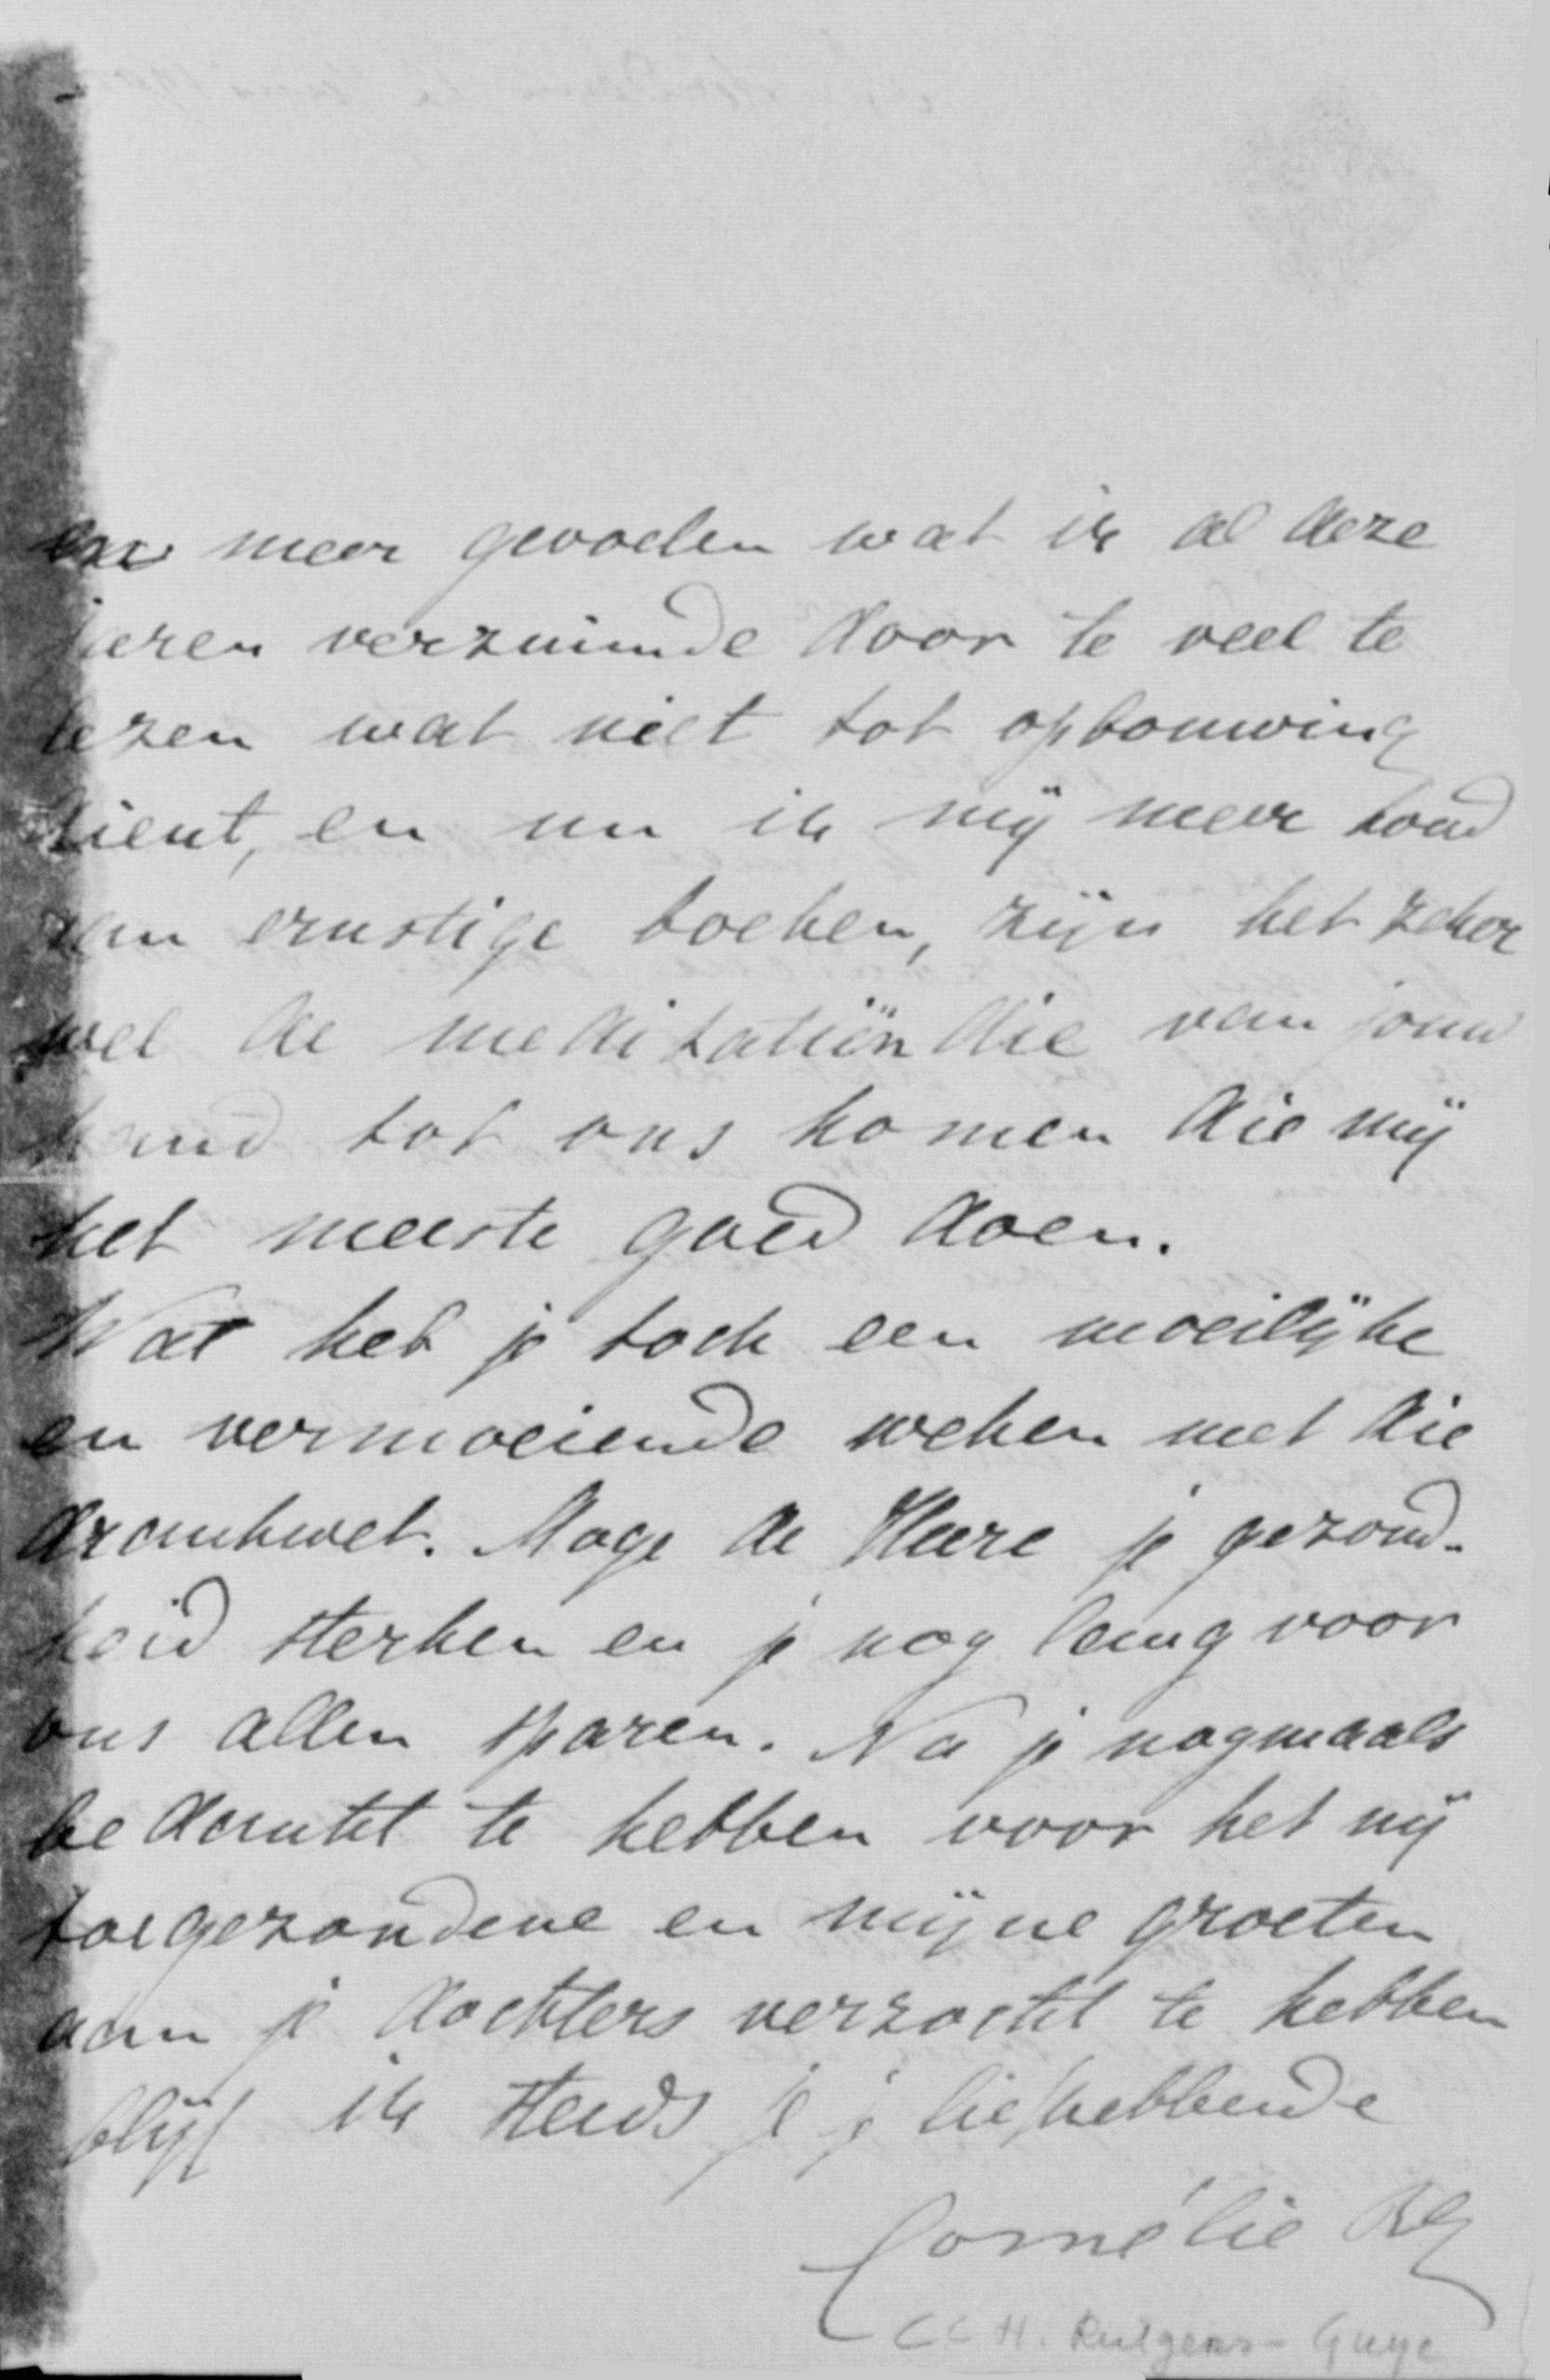 en meer gevoelen wat ik al deze
jaren verzuimde door te veel te
lezen wat niet tot opbouwing
dient, en nu ik mij meer houd
aan ernstige boeken, zijn het zeker
wel de meditatiën die van jouw
hand tot ons komen die mij
het meeste goed doen.
Wat heb je toch een moeilijke
en vermoeiende weken met die
drankwet. Moge de Heere je gezond-
heid sterken en je nog lang voor
ons allen sparen. Na je nogmaals
bedankt te hebben voor het mij
toegezondene en mijne groeten
aan je dochters verzocht te hebben
blijf ik steeds je liefhebbende
Cornélie RG
C C H. Rutgers - Guye